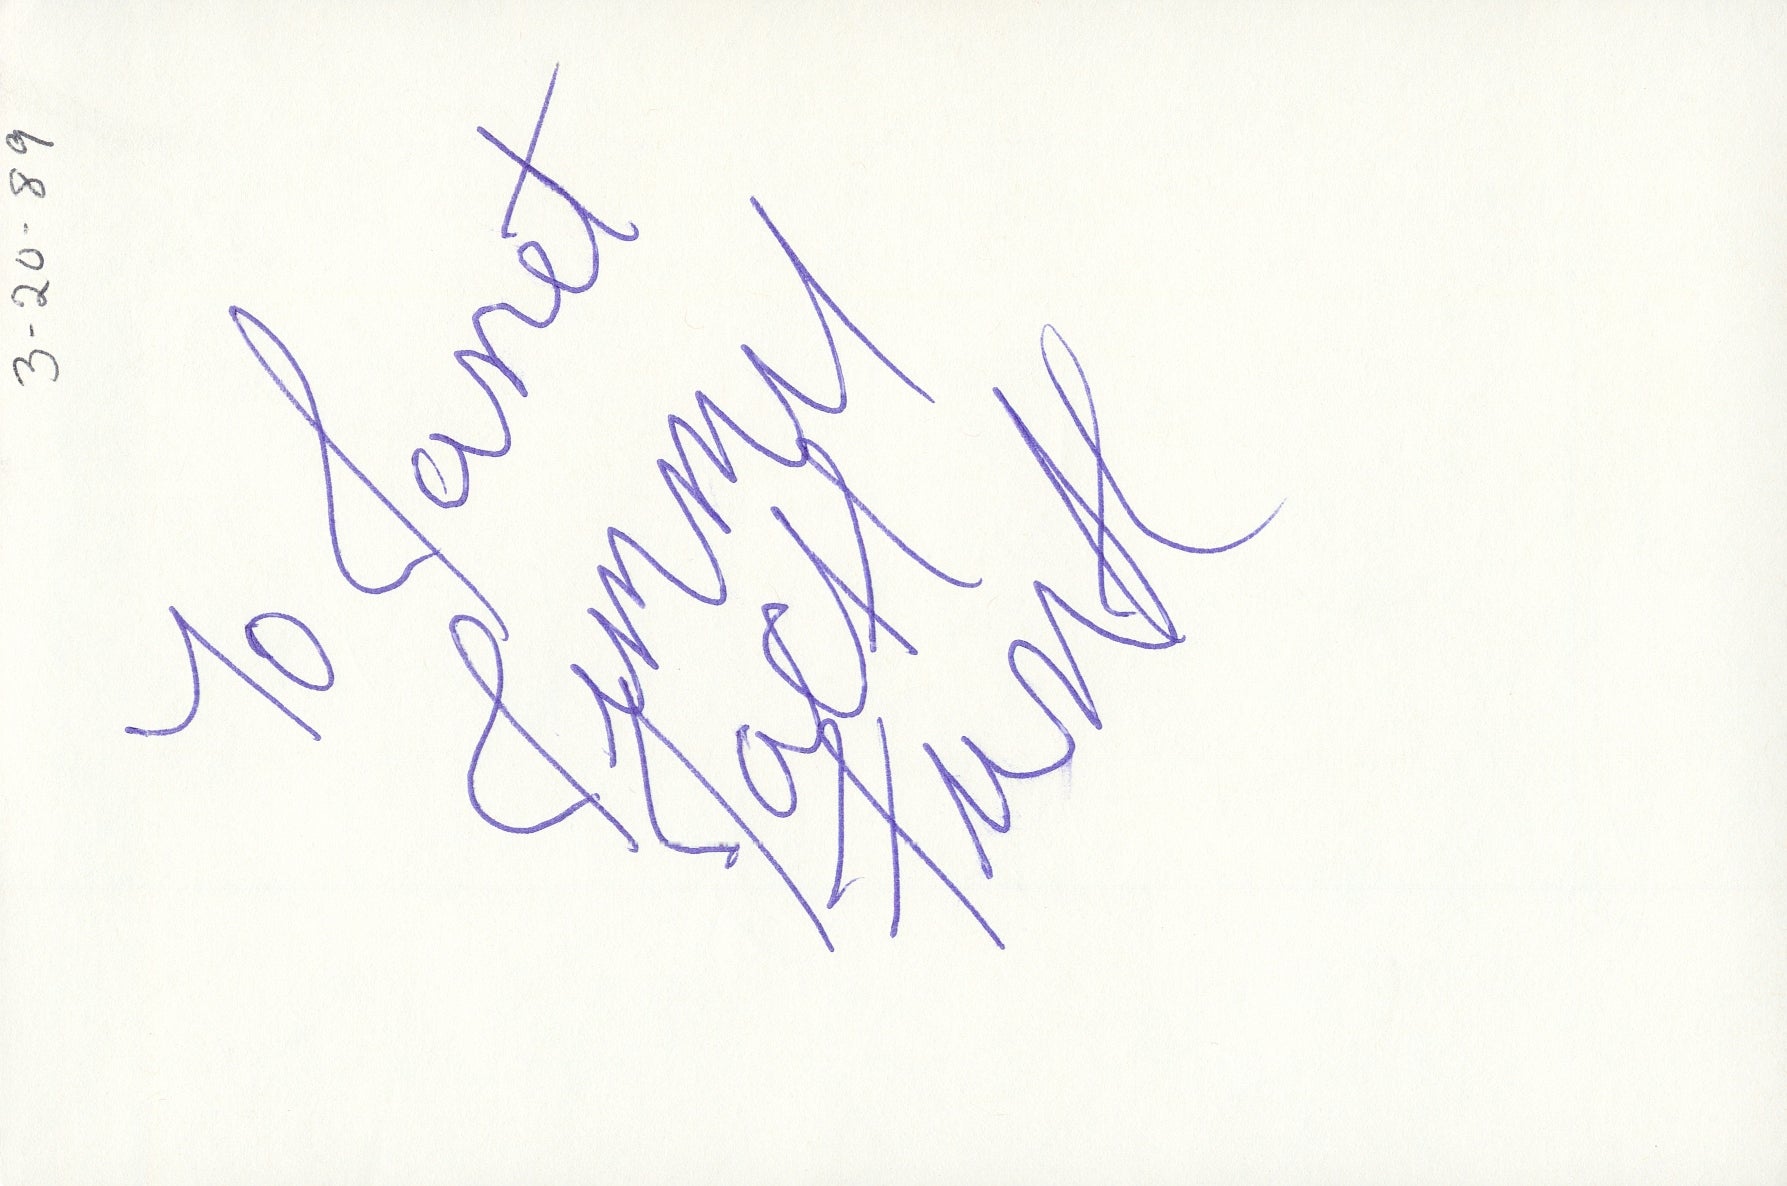 3-20-89
To Janet
Jimmy
Jack
Funk